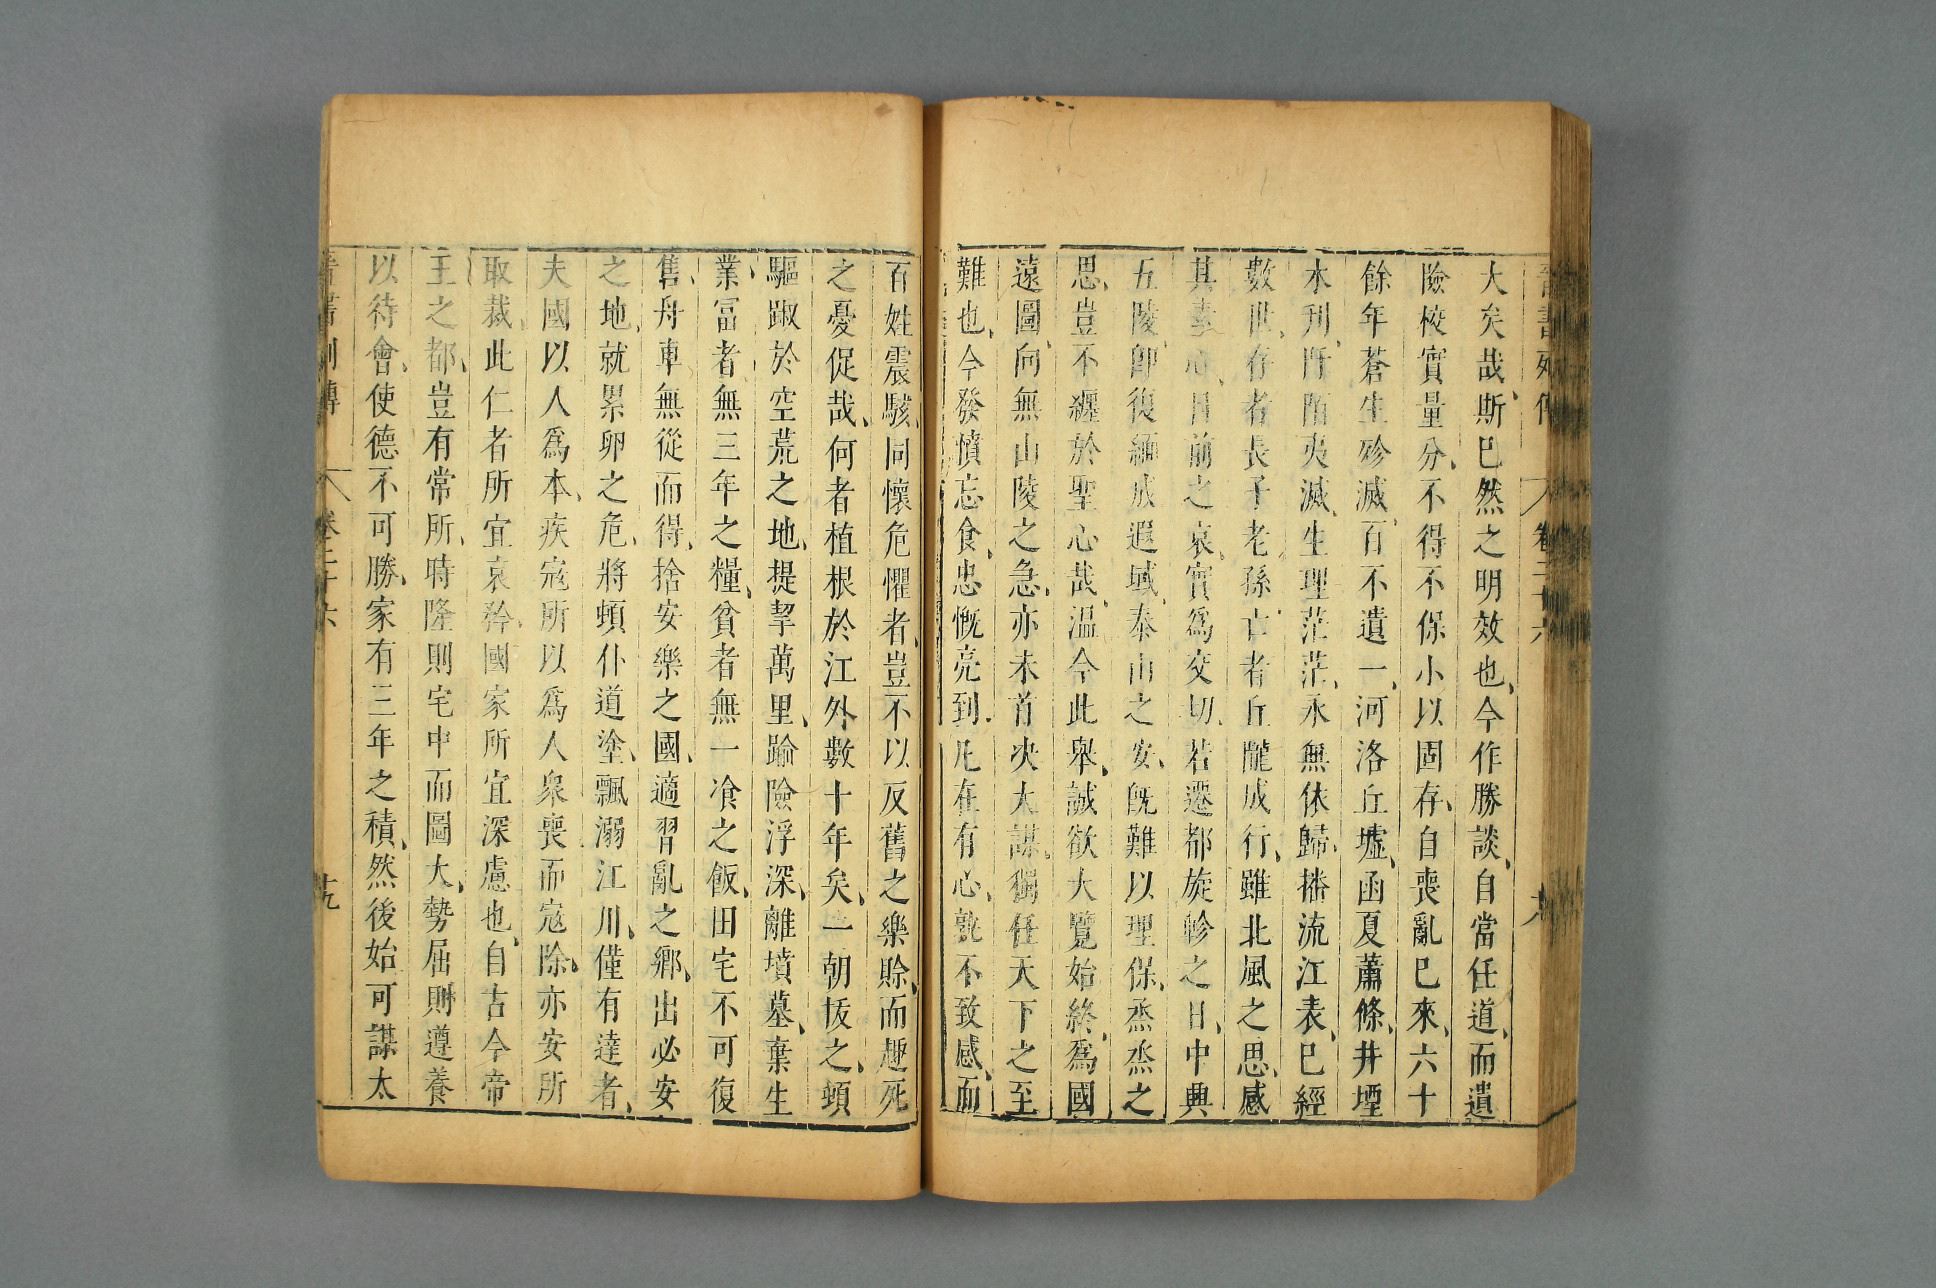 晉書列傳 卷二十六 大
大矣哉、斯巳然之明效也、今作勝談、自當任道、而遺
險校實量分、不得不保小以固存、自喪亂巳來、六十
餘年蒼生殄滅、百不遺一、河洛丘墟、函夏蕭條、井堙
木刊、阡陌夷滅、生理茫茫、永無依歸、播流江表、巳經
數世、存者長子老孫、亡者丘隴成行、雖北風之思、感
其素心、目前之哀、實爲交切、若遷都旋軫之日、中興
五陵、卽復緬成遐域、泰山之安、旣難以理保、烝烝之
思、豈不纏於聖心哉、温今此舉、誠欲大覽始終、爲國
遠圖、向無山陵之急、亦未首决大謀、獨任天下之至
難也、今發憤忘食、忠慨亮到、凡在有心、孰不致感、而
百姓震駭、同懷危懼者、豈不以反舊之樂賒、而趣死
之憂促哉、何者植根於江外數十年矣、一朝拔之、頓
驅踧於空荒之地、提挈萬里、踰險浮深、離墳墓、棄生
業、富者無三年之糧、貧者無一飡之飯、田宅不可復
售、舟車無從而得、捨安樂之國、適習亂之鄉、出必安
之地、就累卵之危、將頓仆道塗、飄溺江川、僅有達者、
夫國以人爲本、疾寇所以爲人衆喪而寇除、亦安所
取裁、此仁者所宜哀矜、國家所宜深慮也、自古今帝
王之都、豈有常所、時隆則宅中而圖大、勢屈則遵養
以待會、使德不可勝、家有三年之積、然後始可謀太
晉書列傳 卷二十六 十九